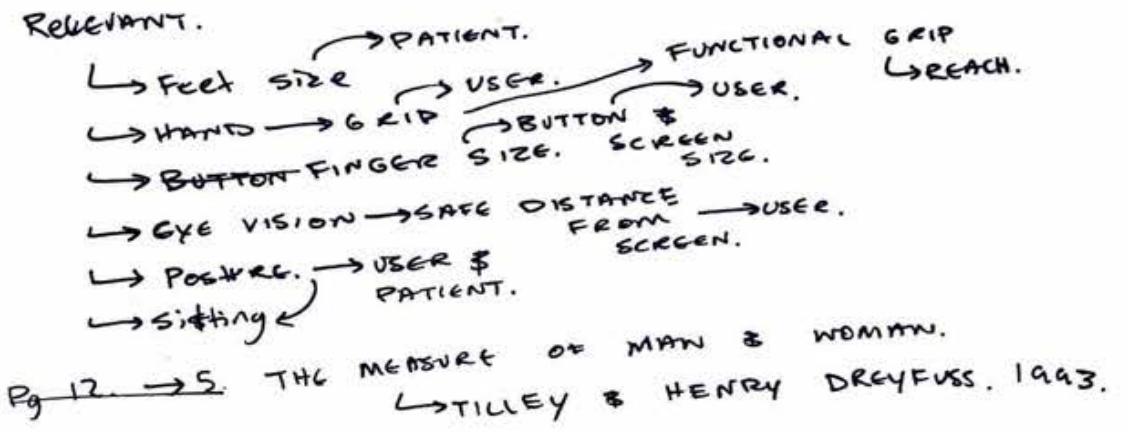 RELEVANT.
↳ Feet size → PATIENT.
↳ HAND → GRIP → USER. → FUNCTIONAL GRIP
↳ REACH.
↳ BUTTON FINGER SIZE. → BUTTON & SCREEN SIZE. → USER.
↳ EYE VISION → SAFE DISTANCE FROM SCREEN. → USER.
↳ Posture. → USER & PATIENT.
↳ Sitting
Pg 12. → 5. THE MEASURE OF MAN & WOMAN.
↳ TILLEY & HENRY DREYFUSS. 1993.